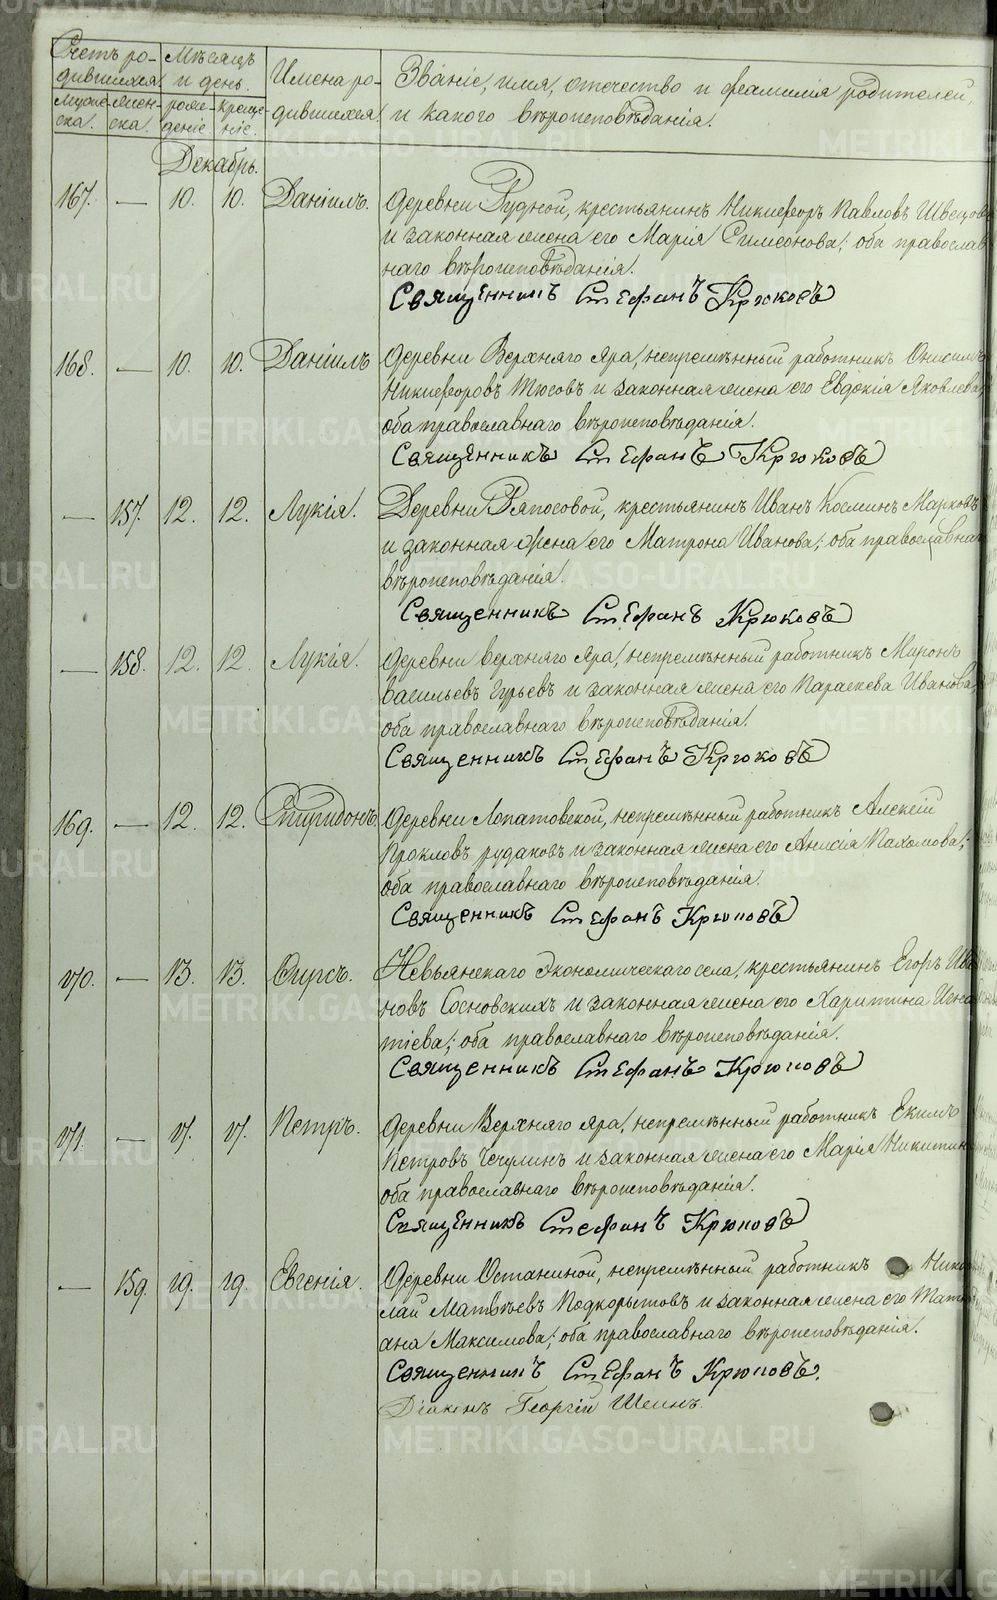 Счетъ ро- Мѣсяцъ Имена ро- Званіе, имя, отчество и фамилія родителей,
дившихся. и день. дившихся. и какого вѣроисповѣданія.
Муже- Жен- рож- креще-
ска. ска. деніе. ніе.
Декабрь.
167. — 10. 10. Даніилъ. Деревни Рудной, крестьянинъ Никифоръ Павловъ Швецовъ
и законная жена его Марія Симеонова; оба православ
наго вѣроисповѣданія.
Священникъ Стефанъ Крюковъ
168. — 10. 10. Даніилъ Деревни Верхняго Яра, непремѣнный работникъ Онисимъ
Никифоровъ Тюсовъ и законная жена его Евдокія Яковлева;
оба православнаго вѣроисповѣданія.
Священникъ Стефанъ Крюковъ
— 157. 12. 12. Лукія. Деревни Ряпосовой, крестьянинъ Иванъ Косминъ Марковъ
и законная жена его Матрона Иванова; оба православнаго
вѣроисповѣданія.
Священникъ Стефанъ Крюковъ
— 158. 12. 12. Лукія. Деревни Верхняго Яра, непремѣнный работникъ Миронъ
Васильевъ Гурьевъ и законная жена его Параскева Иванова,
оба православнаго вѣроисповѣданія.
Священникъ Стефанъ Крюковъ
169. — 12. 12. Спиридонъ. Деревни Лопатовской, непремѣнный работникъ Алексій
Прокловъ Рудаковъ и законная жена его Анисія Пахомова;
оба православнаго вѣроисповѣданія.
Священникъ Стефанъ Крюковъ
170. — 13. 13. Ѳирсъ. Невьянскаго Экономическаго села, крестьянинъ Егоръ Ива
новъ Сосновскихъ и законная жена его Харитина Игна
тіева; оба православнаго вѣроисповѣданія.
Священникъ Стефанъ Крюковъ
171. — 17. 17. Петръ. Деревни Верхняго Яра, непремѣнный работникъ Екимъ
Петровъ Чечулинъ и законная жена его Марія Никитина
оба православнаго вѣроисповѣданія.
Священникъ Стефанъ Крюковъ
— 159. 19. 19. Евгенія. Деревни Останиной, непремѣнный работникъ Нико
лай Матвѣевъ Подкорытовъ и законная жена его Тать
яна Максимова; оба православнаго вѣроисповѣданія.
Священникъ Стефанъ Крюковъ.
Діаконъ Георгій Шеинъ.
METRIKI.GASO-URAL.RU